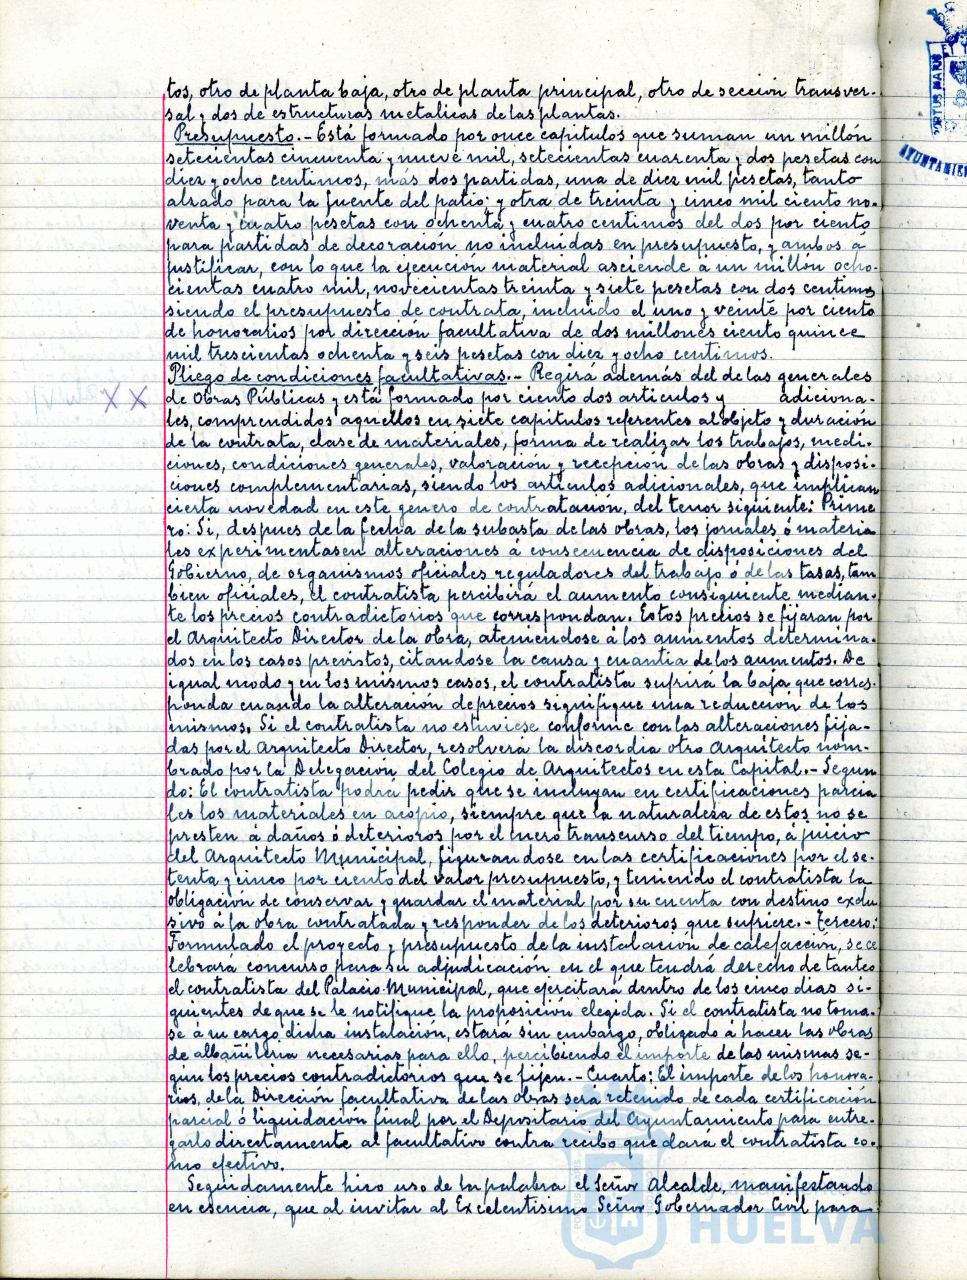 tos, otro de planta baja, otro de planta principal, otro de sección transver-
sal y dos de estructuras metalicas de las plantas.
Presupuesto.- Está formado por once capitulos que suman un millón
setecientas cincuenta y nueve mil, setecientas cuarenta y dos pesetas con
diez y ocho centimos, más dos partidas, una de diez mil pesetas, tanto
alzado para la fuente del patio; y otra de treinta y cinco mil ciento no-
venta y cuatro pesetas con ochenta y cuatro centimos del dos por ciento
para partidas de decoración no incluidas en presupuesto, y ambos a
justificar, con lo que la ejecución material asciende á un millón ocho-
cientas cuatro mil, novecientas treinta y siete pesetas con dos centimos
siendo el presupuesto de contrata, incluido el uno y veinte por ciento
de honorarios por dirección facultativa de dos millones ciento quince
mil trescientas ochenta y seis pesetas con diez y ocho centimos.
Pliego de condiciones facultativas.- Regirá además del de las generales
XX de Obras Públicas y está formado por ciento dos articulos y adiciona-
les, comprendidos aquellos en siete capitulos referentes al objeto y duración
de la contrata, clase de materiales, forma de realizar los trabajos, medi-
ciones, condiciones generales, valoración y recepción de las obras y disposi-
ciones complementarias, siendo los articulos adicionales, que implican
cierta novedad en este genero de contratación, del tenor siguiente: Prime
ro: Si, despues de la fecha de la subasta de las obras, los jornales ó materia
les experimentasen alteraciones á consecuencia de disposiciones del
Gobierno, de organismos oficiales reguladores del trabajo ó de las tasas, tam
bien oficiales, el contratista percibirá el aumento consiguiente median-
te los precios contradictorios que correspondan. Estos precios se fijaran por
el Arquitecto Director de la obra, ateniendose á los aumentos determina-
dos en los casos previstos, citandose la causa y cuantia de los aumentos. De
igual modo y en los mismos casos, el contratista sufrirá la baja que corres-
ponda cuando la alteración de precios signifique una reducción de los
mismos. Si el contratista no estuviese conforme con las alteraciones fija-
das por el Arquitecto Director, resolverá la discordia otro Arquitecto nom-
brado por la Delegación del Colegio de Arquitectos en esta Capital.- Segun
do: El contratista podrá pedir que se incluyan en certificaciones parcia
les los materiales en acopio, siempre que la naturalesa de estos no se
presten á daños ó deterioros por el mero transcurso del tiempo, á juicio
del Arquitecto Municipal, figurandose en las certificaciones por el se-
tenta y cinco por ciento del valor presupuesto, y teniendo el contratista la
obligación de conservar y guardar el material por su cuenta con destino exclu
sivo á la obra contratada y responder de los deterioros que sufriere.- Tercero:
Formulado el proyecto y presupuesto de la instalación de calefacción, se ce
lebrará concurso para su adjudicación en el que tendrá derecho de tanteo
el contratista del Palacio Municipal, que ejercitará dentro de los cinco dias si-
guientes de que se le notifique la proposición elegida. Si el contratista no toma-
se á su cargo dicha instalación, estará sin embargo, obligado á hacer las obras
de albañileria necesarias para ello, percibiendo el importe de las mismas se-
gun los precios contradictorios que se fijen.- Cuarto: El importe de los honora-
rios, de la Dirección facultativa de las obras será retenido de cada certificación
parcial ó liquidación final por el Depositario del Ayuntamiento para entre-
garlo directamente al facultativo contra recibo que dará el contratista co-
mo efectivo.
Seguidamente hizo uso de la palabra el Señor Alcalde, manifestando
en esencia, que al invitar al Excelentisimo Señor Gobernador Civil para
HUELVA